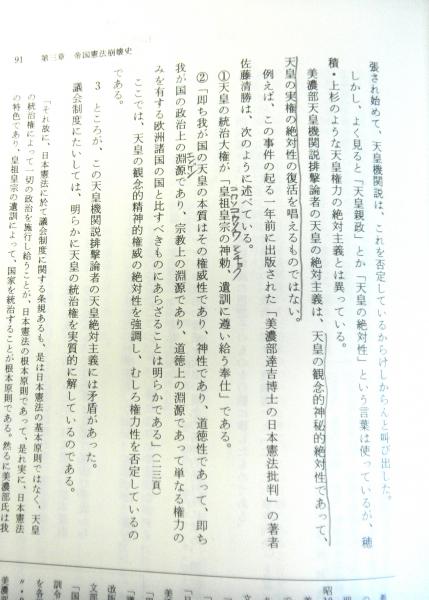 91　第三章　帝国憲法崩壊史
張され始めて、天皇機関説は、これを否定しているからけしからんと叫び出した。
しかし、よく見ると「天皇親政」とか「天皇の絶対性」という言葉は使っているが、穂
積・上杉のような天皇権力の絶対主義とは異っている。
美濃部天皇機関説排撃論者の天皇の絶対主義は、天皇の観念的神秘的絶対性であって、
天皇の実権の絶対性の復活を唱えるものではない。
例えば、この事件の起る一年前に出版された「美濃部達吉博士の日本憲法批判」の著者
佐藤清勝は、次のように述べている。
①天皇の統治大権が「皇祖皇宗の神勅、遺訓に遵い給う奉仕」である。
②「即ち我が国の天皇の本質はその権威性であり、神性であり、道徳性であって、即ち
我が国の政治上の淵源であり、宗教上の淵源であり、道徳上の淵源であって単なる権力の
みを有する欧洲諸国の国と比すべきものにあらざることは明らかである」（二三頁）
ここでは、天皇の観念的精神的権威の絶対性を強調し、むしろ権力性を否定しているの
である。
3　ところが、この天皇機関説排撃論者の天皇絶対主義には矛盾があった。
議会制度にたいしては、明らかに天皇の統治権を実質的に解しているのである。
「それ故に、日本憲法に於て議会制度に関する条規あるも、是は日本憲法の基本原則ではなく、天皇
の統治権によって一切の政治を施行し給うことが、日本憲法の根本原則であって、是れ実に、日本憲法
の特色であり、皇祖皇宗の遺訓によって、国家を統治することが根本原則である。然るに美濃部氏は我